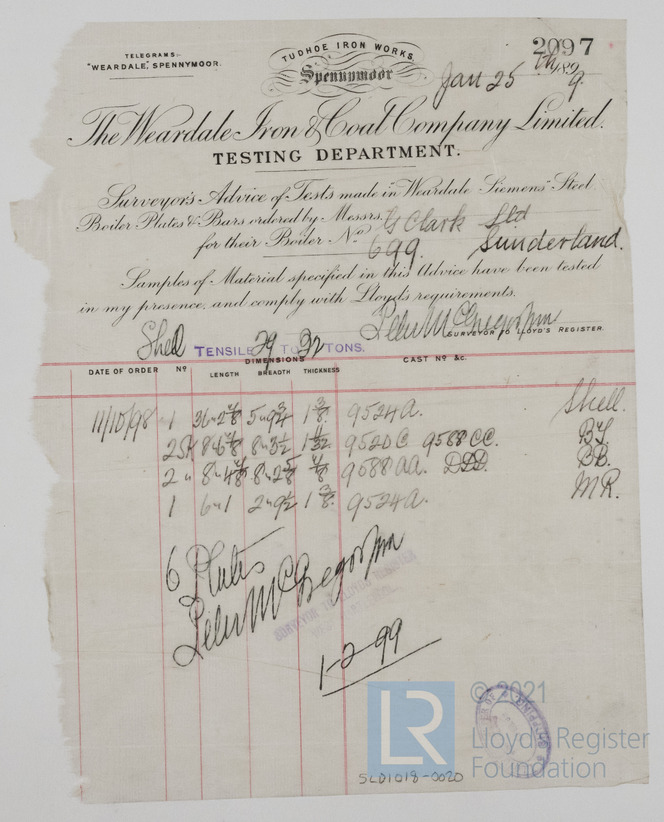 TELEGRAMS:-
"WEARDALE," SPENNYMOOR.
TUDHOE IRON WORKS.
Spennymoor
2097
Jan 25th 1899.
The Weardale Iron & Coal Company Limited.
TESTING DEPARTMENT.
Surveyor's Advice of Tests made in Weardale "Siemens" Steel
Boiler Plates & Bars ordered by Messrs. G Clark Ltd
for their Boiler No. 699. Sunderland.
Samples of Material specified in this Advice have been tested
in my presence, and comply with Lloyd's requirements.
Peter McGregor
SURVEYOR TO LLOYD'S REGISTER.
Shell TENSILE 29 TO 32 TONS.
DATE OF ORDER No DIMENSIONS CAST No &c.
LENGTH BREADTH THICKNESS
11/10/98 1 5 " 9 3/4 1 3/8 9524A. Shell.
2 8 " 3 1/2 1 11/32 9520C 9588CC.
2 " 9588AA. DDD.
1 6 " 1 2 " 9 1/2 1 3/8 9524A. MR.
6 Plates
Peter McGregor
SURVEYOR TO LLOYDS REGISTER
1-2-99
LR
© 2021
Lloyd's Register
Foundation
SLD1018-0020